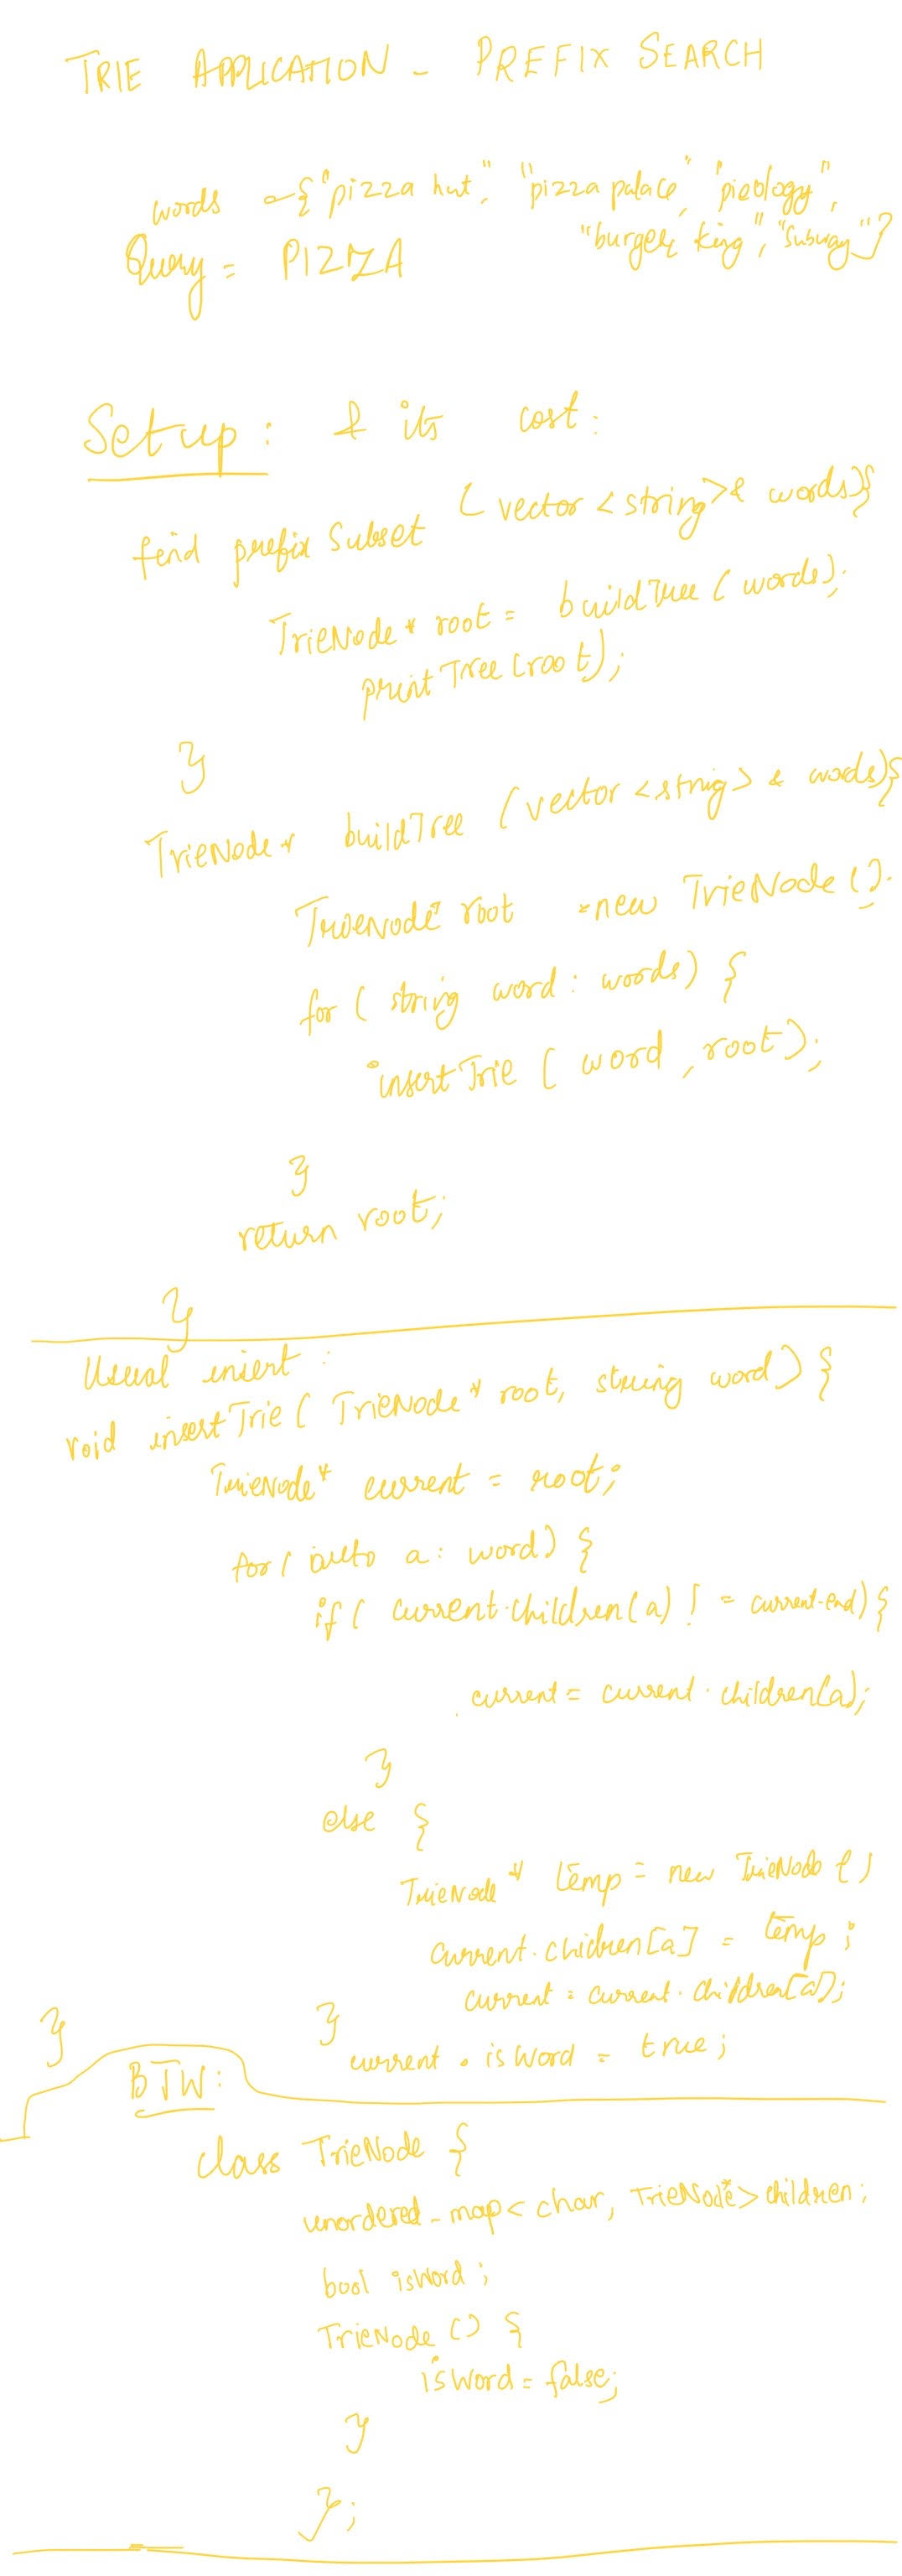 TRIE APPLICATION - PREFIX SEARCH
words = {"pizza hut", "pizza palace", "pieology",
"burger king", "subway"}
Query = PIZZA
Setup: & its cost:
find prefix Subset (vector <string>& words){
TrieNode* root = buildTree (words);
print Tree (root);
}
TrieNode* buildTree (vector <string> & words){
TrieNode* root =new TrieNode ();
for ( string word : words) {
insert Trie ( word , root);
}
return root;
}
Usual insert :
void insert Trie ( TrieNode* root, string word) {
TrieNode* current = root;
for ( auto a : word) {
if ( current.children(a) != current.end) {
current = current . children(a);
}
else {
TrieNode * temp = new TrieNode ()
current.children[a] = temp ;
current = current . children[a];
}
}
current . isWord = true ;
BTW:
class TrieNode {
unordered_map < char, TrieNode*> children;
bool isWord ;
TrieNode () {
isWord = false;
}
};